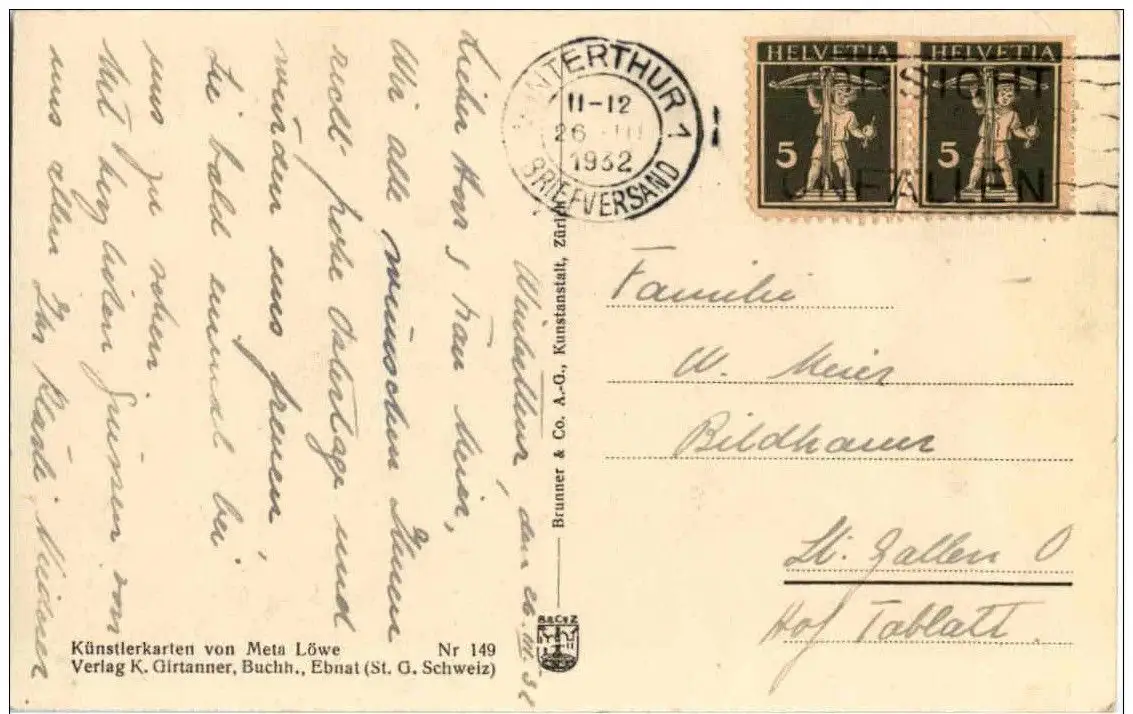 Winterthur, den 26.III.32
Lieber Herr & Frau Meier,
Wir alle wünschen Ihnen
recht frohe Ostertage und
würden uns freuen,
Sie bald einmal bei
uns zu sehen
Mit herzlichen Grüssen von
uns allen Ihr
WINTERTHUR 1
11-12
26 III
1932
BRIEFVERSAND
HELVETIA
5
HELVETIA
5
VORSICHT
UNFÄLLEN
Familie
W. Meier
Bildhauer
St. Gallen O
Hof Tablatt.
Brunner & Co. A.-G., Kunstanstalt, Zürich
B&CºZ
Künstlerkarten von Meta Löwe Nr 149
Verlag K. Girtanner, Buchh., Ebnat (St. G. Schweiz)